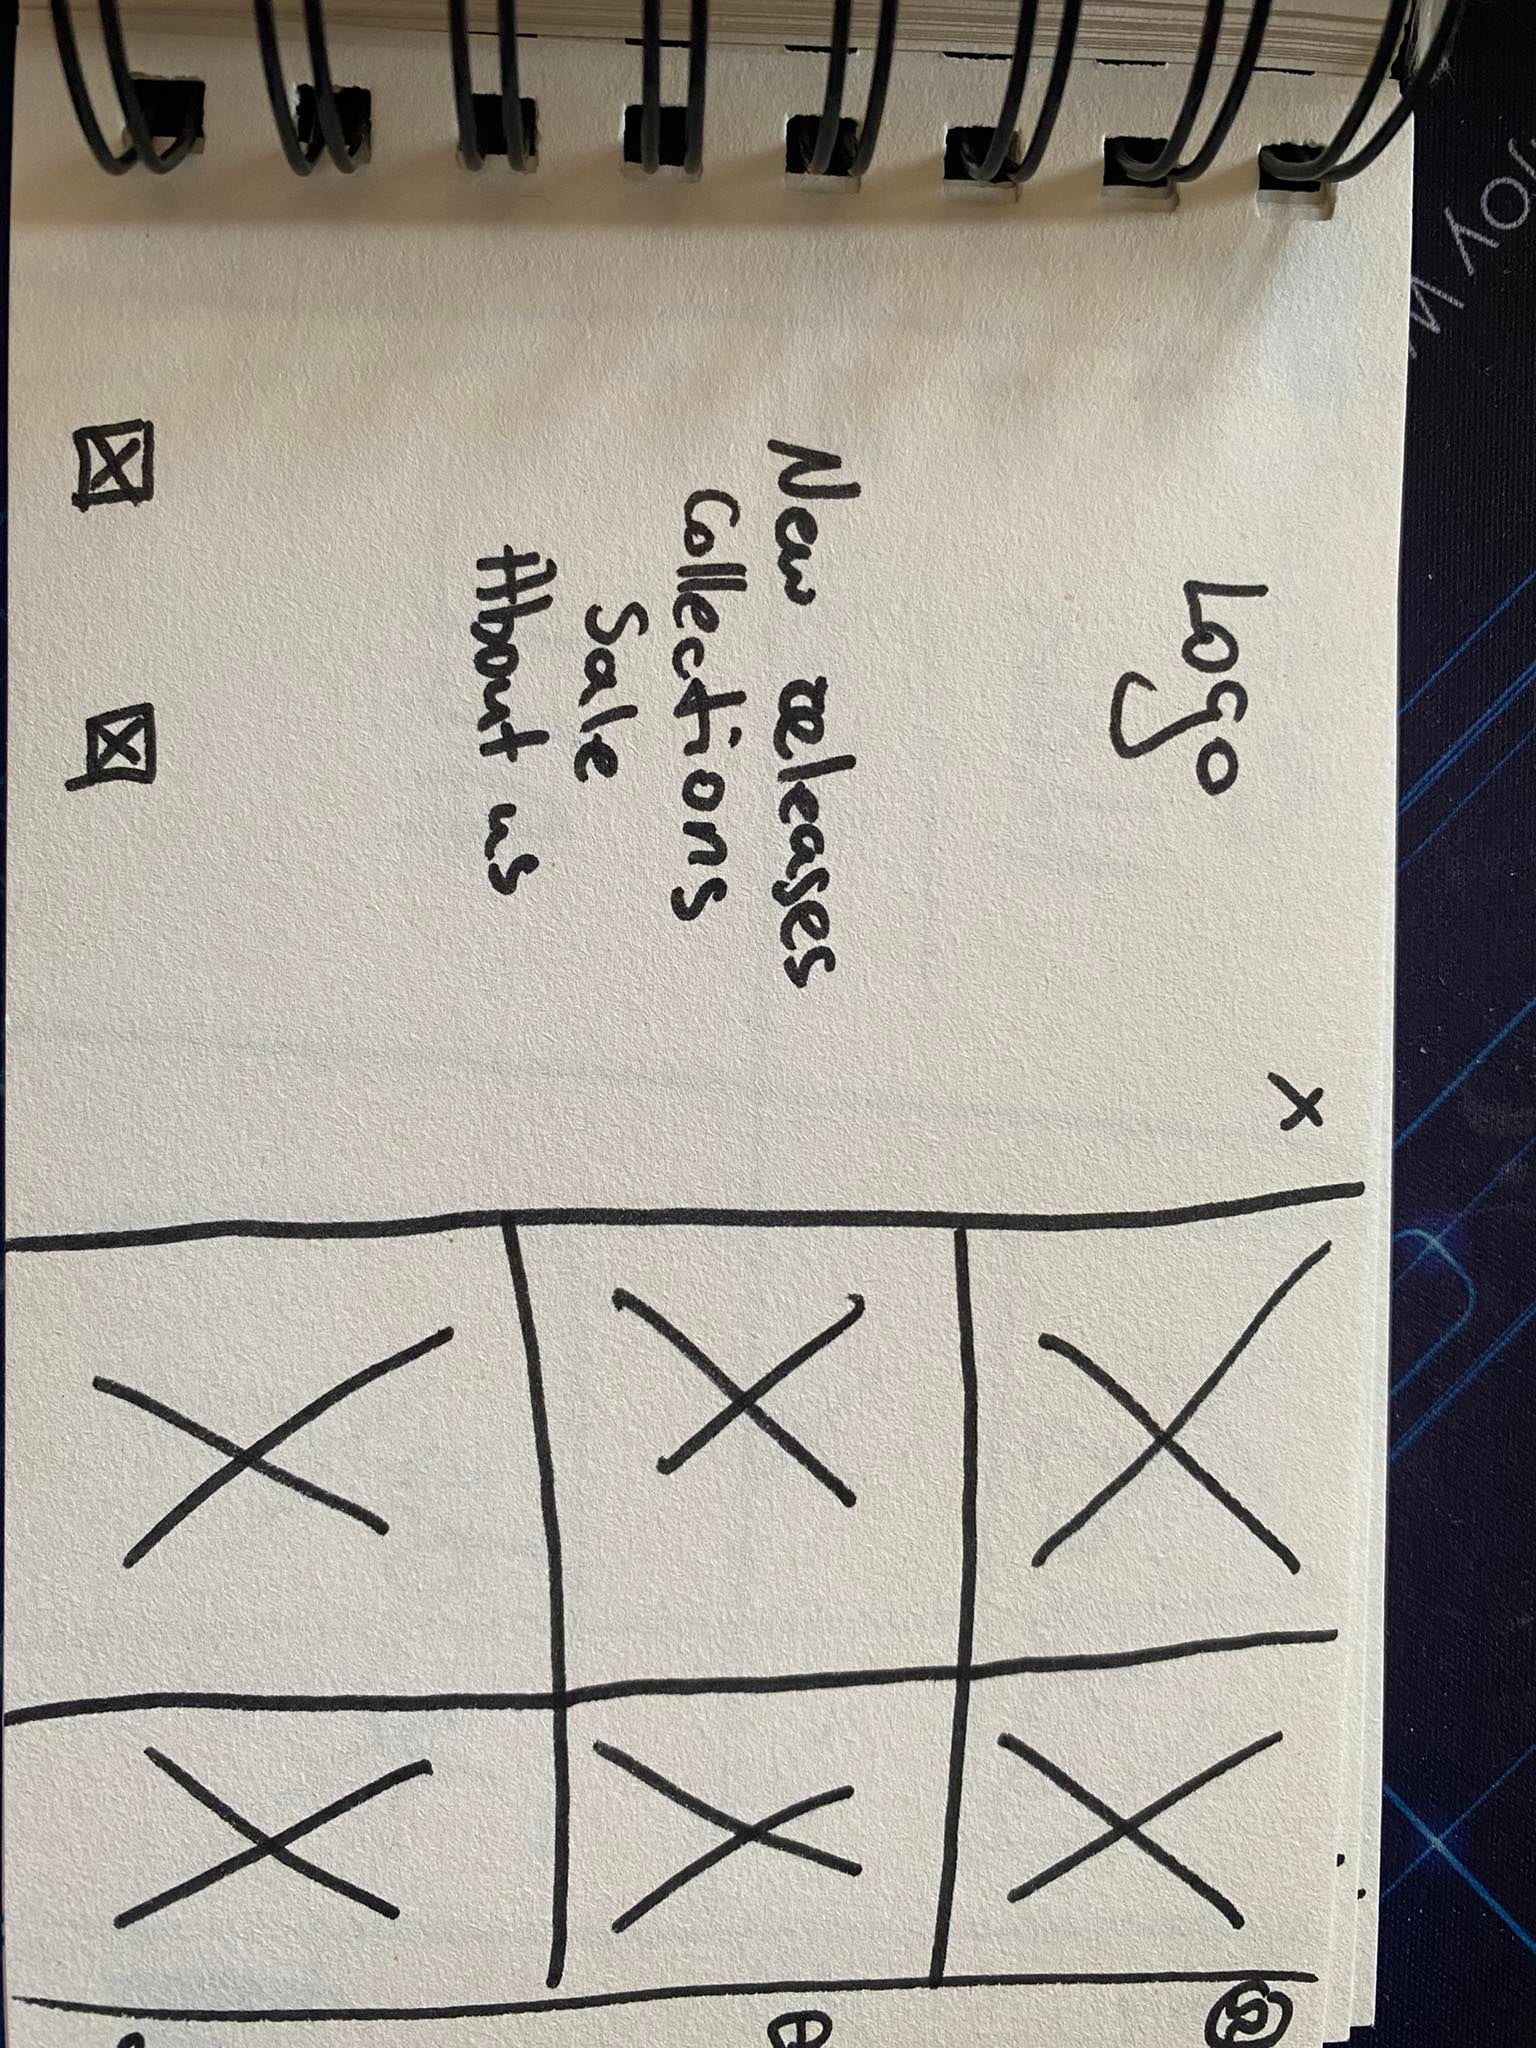 Logo
x
New releases
Collections
Sale
About us